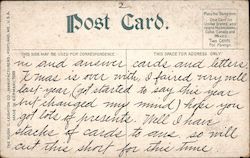 2
Post Card.
THIS SIDE MAY BE USED FOR CORRESPONDENCE
THIS SPACE FOR ADDRESS ONLY
Place the Stamp here
One Cent for
United States and
Island Possessions
Cuba, Canada and
Mexico
Two Cents
for Foreign.
THE HUGH C. LEIGHTON CO., MANUFACTURERS, PORTLAND, ME. U.S.A.
in and answer cards and letters.
Xmas is over with, I faired very well
last year (got started to say this year
but changed my mind) hope you
got lots of presents. Well I have
stacks of cards to ans. so will
cut this short for this time.